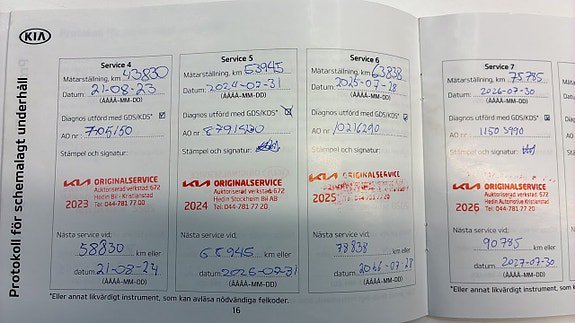 KIA
Protokoll för schemalagt underhåll
Service 4
Mätarställning, km 43830
Datum: 21-08-23
(ÅÅÅÅ-MM-DD)
Diagnos utförd med GDS/KDS*
AO nr: 7705150
Stämpel och signatur:
KIA ORIGINALSERVICE
Auktoriserad verkstad: 672
2023 Hedin Bil - Kristianstad
Tel: 044-781 77 00
Nästa service vid;
58830 km eller
datum 21-08-24
(ÅÅÅÅ-MM-DD)
Service 5
Mätarställning, km 53945
Datum: 2024-07-31
(ÅÅÅÅ-MM-DD)
Diagnos utförd med GDS/KDS*
AO nr
Stämpel och signatur:
KIA ORIGINALSERVICE
Auktoriserad verkstad: 672
2024 Hedin Stockholm Bil AB
Tel: 044-781.77.20
Nästa service vid;
68945 km eller
datum: 2026-07-31
(ÅÅÅÅ-MM-DD)
Service 6
Mätarställning, km 63838
Datum: 2025-07-28
(ÅÅÅÅ-MM-DD)
Diagnos utförd med GDS/KDS*
AO nr: 10216290
Stämpel och signatur:
KIA ORIGINALSERVICE
2025
Tel: 044-781.77.20
Nästa service vid;
78838 km eller
datum: 2026-07-28
(ÅÅÅÅ-MM-DD)
*Eller annat likvärdigt instrument, som kan avläsa nödvändiga felkoder.
16
Service 7
Mätarställning, km 75785
Datum: 2026-07-30
(ÅÅÅÅ-MM-DD)
Diagnos utförd med GDS/KDS*
AO nr: 11503990
Stämpel och signatur:
KIA ORIGINALSERVICE
Auktoriserad verkstad: 672
2026 Hedin Automotive Kristianstad
Tel: 044-781.77.20
Nästa service vid;
90785 km eller
datum: 2027-07-30
(ÅÅÅÅ-MM-DD)
*Eller annat likvärdigt instrument, som kan avläsa